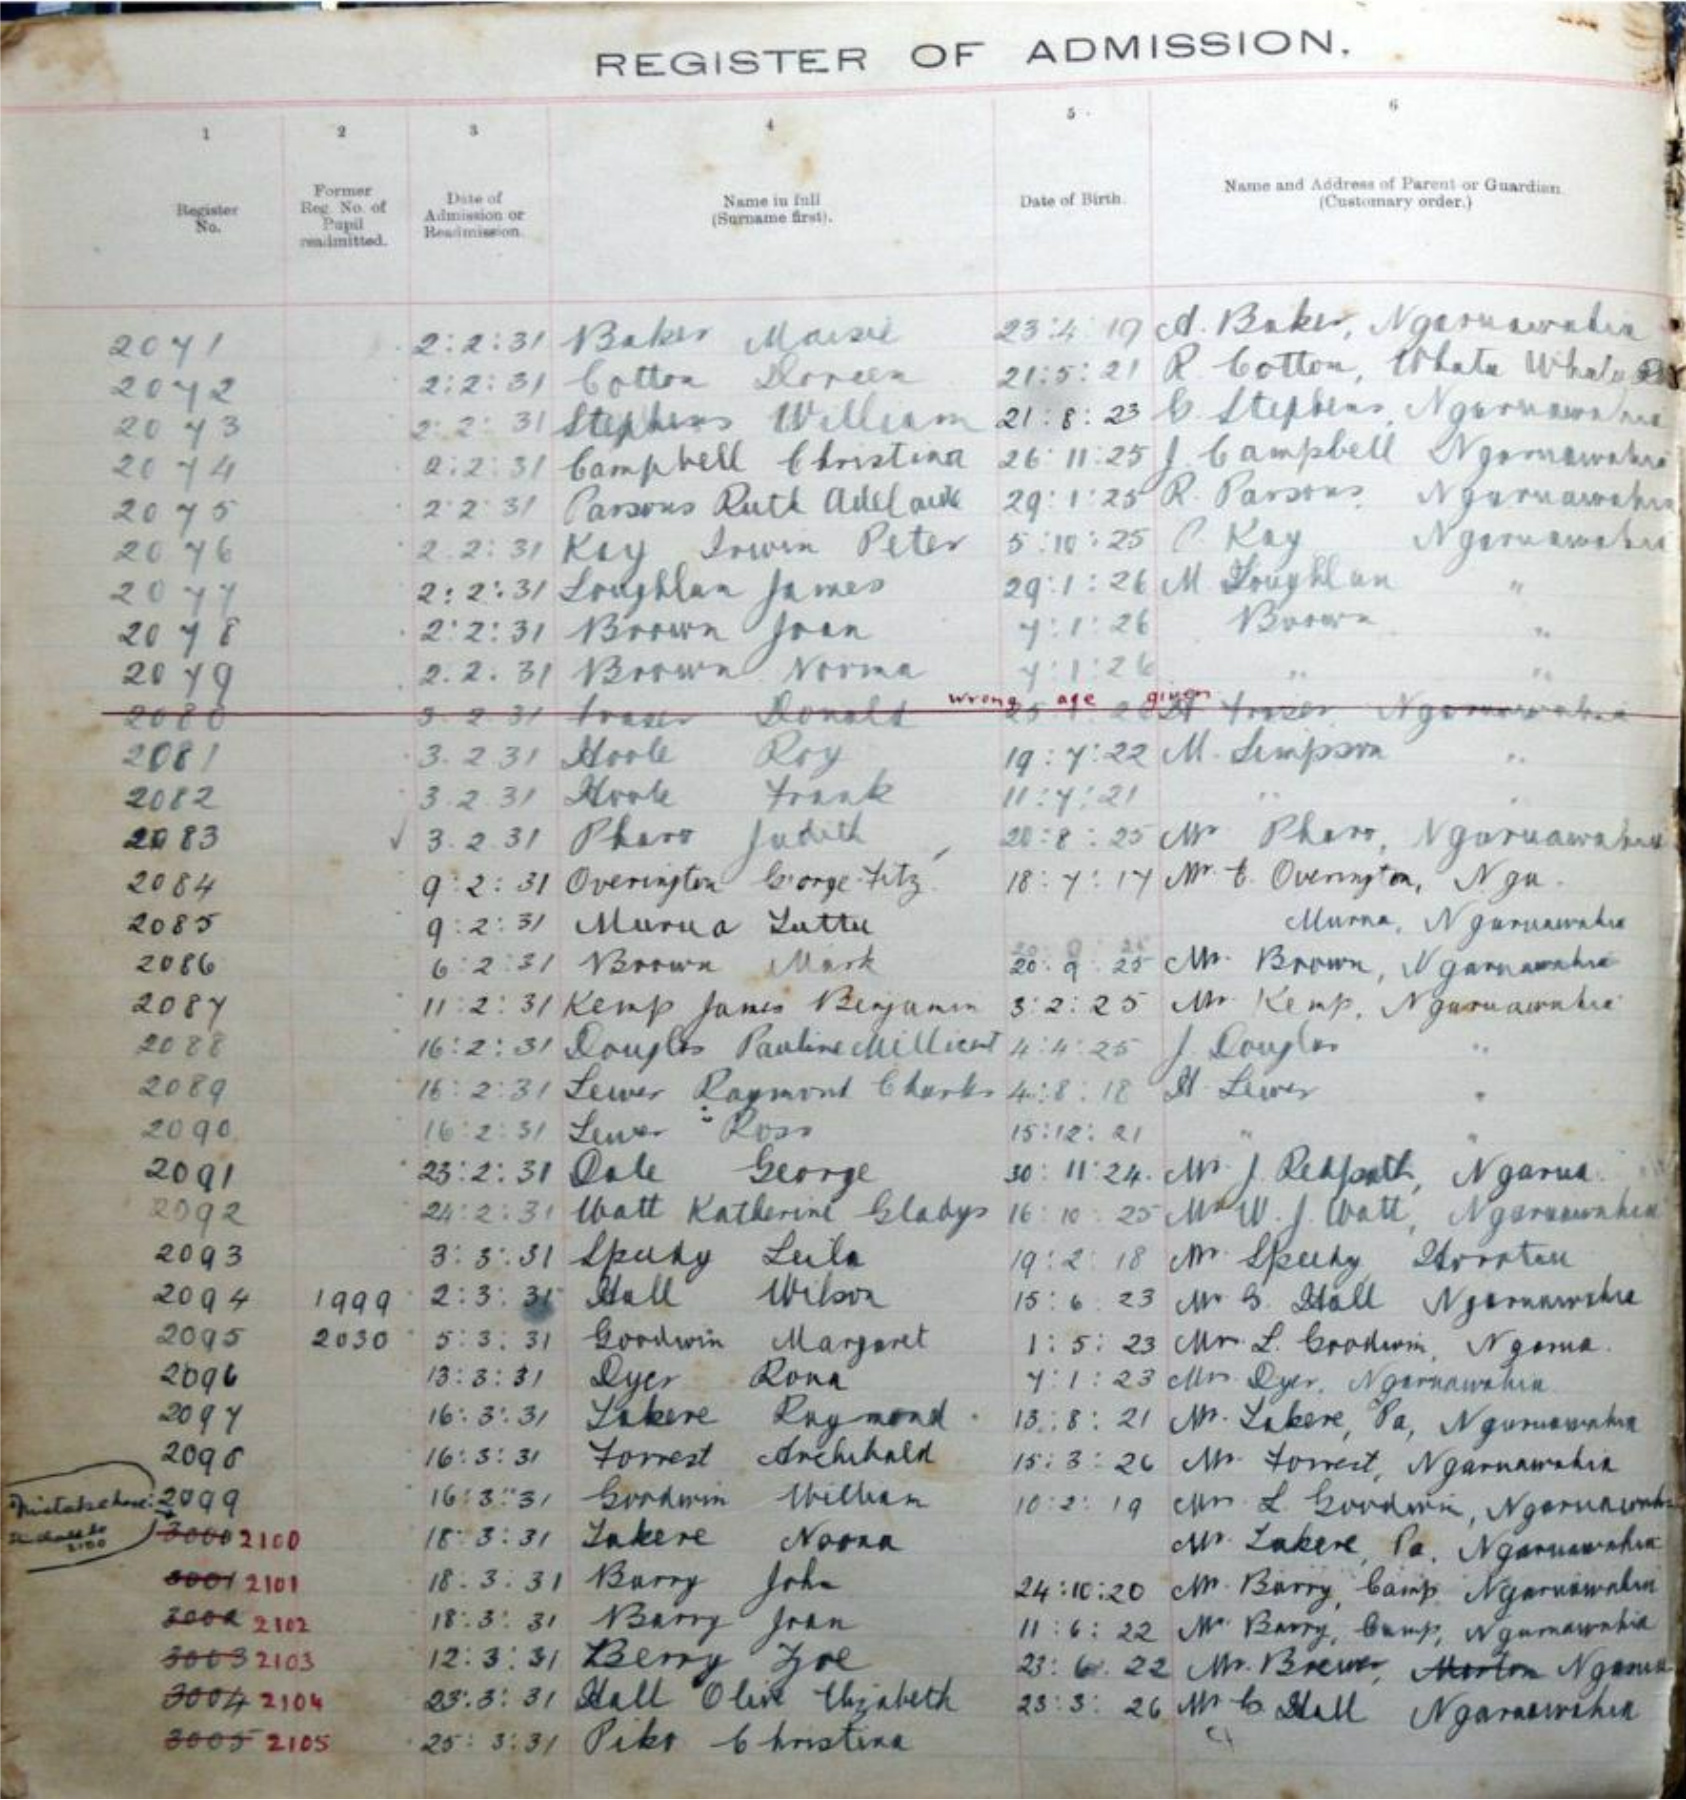 REGISTER OF ADMISSION.
1 2 3 4 5 6
Register No. Former Reg. No. of Pupil readmitted. Date of Admission or Readmission. Name in full (Surname first). Date of Birth. Name and Address of Parent or Guardian (Customary order.)
2071 2:2:31 Baker Maisie 23:4:19 A. Baker, Ngaruawahia
2072 2:2:31 Cotton Doreen 21:5:21 R Cotton, Whata Whata
2073 2:2:31 Stephens William 21:8:23 C. Stephens, Ngaruawahia
2074 2:2:31 Campbell Christina 26:11:25 J. Campbell Ngaruawahia
2075 2:2:31 Parsons Ruth Adelaide 29:1:25 R. Parsons Ngaruawahia
2076 2.2:31 Kay Irwin Peter 5:10:25 C. Kay Ngaruawahia
2077 2:2:31 Loughlan James 29:1:26 M. Loughlan "
2078 2:2:31 Brown Joan 7:1:26 Brown "
2079 2.2.31 Brown Norma 7:1:26 " "
wrong age given
2080 3 2 31 Fraser Donald 25 1 26 Fraser Ngaruawahia
2081 3.2.31 Hoole Roy 19:7:22 M. Simpson "
2082 3.2.31 Hoole Frank 11:7:21 " "
2083 √ 3.2.31 Pharo Judith 20:8:25 Mr Pharo, Ngaruawahia
2084 9:2:31 Overington George Fitz 18:7:17 Mr. C. Overington, Ngu.
2085 9:2:31 Murua Tuttu Murua, Ngaruawahia
2086 6:2:31 Brown Mark 20:9:25 Mr. Brown, Ngaruawahia
2087 11:2:31 Kemp James Benjamin 3:2:25 Mr. Kemp, Ngaruawahia
2088 16:2:31 Douglas Pauline Millicent 4:4:25 J. Douglas "
2089 16:2:31 Lewer Raymond Charles 4:8:18 H. Lewer "
2090 16:2:31 Lewer Ross 15:12:21 " "
2091 23:2:31 Dale George 30:11:24. Mr. J. Redpath, Ngarua.
2092 24:2:31 Watt Katherine Gladys 16:10:25 Mr W. J. Watt, Ngaruawahia
2093 3:3:31 Speedy Leila 19:2:18 Mr. Speedy
2094 1999 2:3:31 Hall Wilson 15:6:23 Mr G. Hall Ngaruawahia
2095 2030 5:3:31 Goodwin Margaret 1:5:23 Mr. L. Goodwin, Ngarua.
2096 13:3:31 Dyer Rona 7:1:23 Mr. Dyer, Ngaruawahia
2097 16:3:31 Takere Raymond 13:8:21 Mr. Takere, Pa, Ngaruawahia
2098 16:3:31 Forrest Archibald 15:3:26 Mr. Forrest, Ngaruawahia
Mistake here: 2099 16:3:31 Goodwin William 10:2:19 Mr. L Goodwin, Ngaruawahia
should be 2100 3000 2100 18:3:31 Takere Noona Mr. Takere, Pa, Ngaruawahia
3001 2101 18:3:31 Barry John 24:10:20 Mr. Barry, Camp Ngaruawahia
3002 2102 18:3:31 Barry Joan 11:6:22 Mr Barry, Camp, Ngaruawahia
3003 2103 12:3:31 Berry Zoe 23:6:22 Mr. Brewer, Ngarua
3004 2104 23:3:31 Hall Olive Elizabeth 23:3:26 Mr G Hall Ngaruawahia
3005 2105 25:3:31 Piko Christina